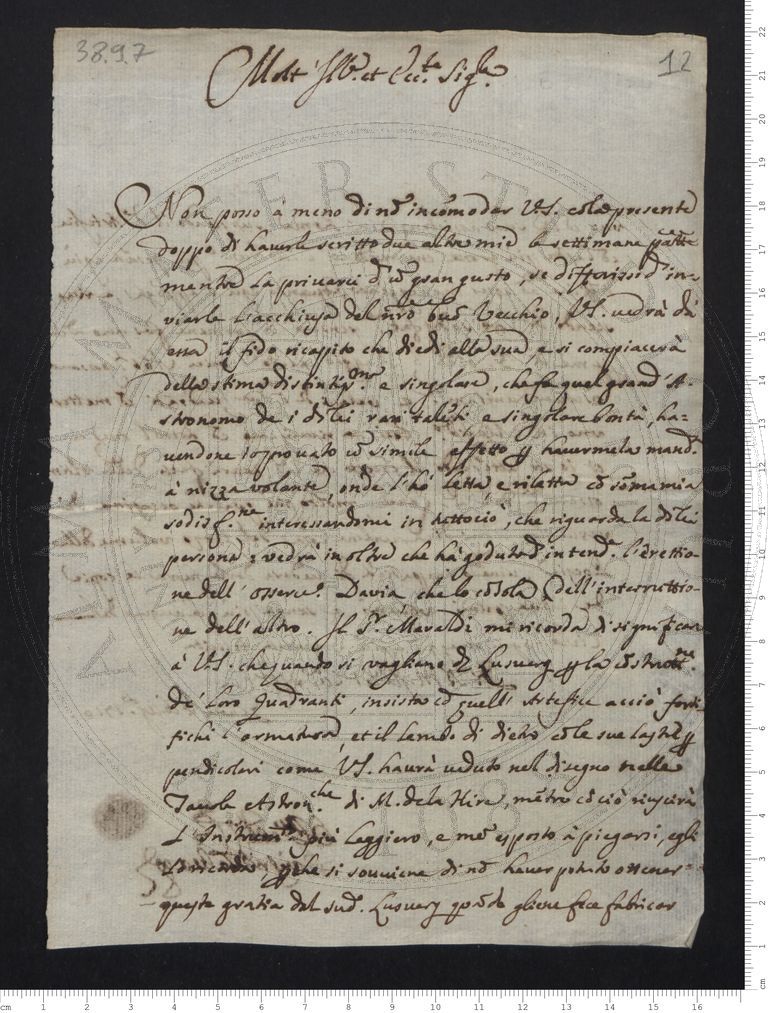 38.9.7
12
Molt' Ill.e et Ecc.te Sig.re
Non posso à meno di nõ incomodar VS. cola presente
doppo di haverle scritto due altre mie le settimane pãtte
mentre La privarei d' ũ gran gusto, se differissi d' in-
viarle L'acchiusa del nrõ buõ Vecchio, VS. vedrà dà
essa il fido ricapito che diedi alla sua e si compiacerà
della stima distintis.ma e singolare, che fa quel grand' A-
stronomo de i di Lei rari talẽti e singolare bontà, ha=
vendone io provato ũ simile effetto p havermela mand.
à nizza volante, onde l'hó letta, e riletta cõ sõma mia
sodisf.ne interessandomi in tuttociò, che riguarda la di lei
persona: vedrà in oltre che hà goduto d' intend. l'erettio-
ne dell' osserv.o Davia che lo cõsola dell' interruttio-
ne dell' altro. Il S.r Maraldi mi ricorda di significar
à VS. che quando si vagliano di Lusuerg p la cõstrutt.ne
de' Loro Quadranti, insista cõ quell' Artefice acciò forti
fichi l'armatura, et il lembo di dietro cõ le sue lastre p
pendicolari come VS. haurà veduto nel disegno nelle
Tavole Astron.che di M. de la Hire, mẽtre cõ ciò riuscirà
L' Instrum.to più leggiero, e mẽ esposto à piegarsi, egli
Lo ricorda, pche si souuiene di nõ haver potuto ottener=
queste gratia dal sud. Lusuerg quãdo gliene fece fabricar